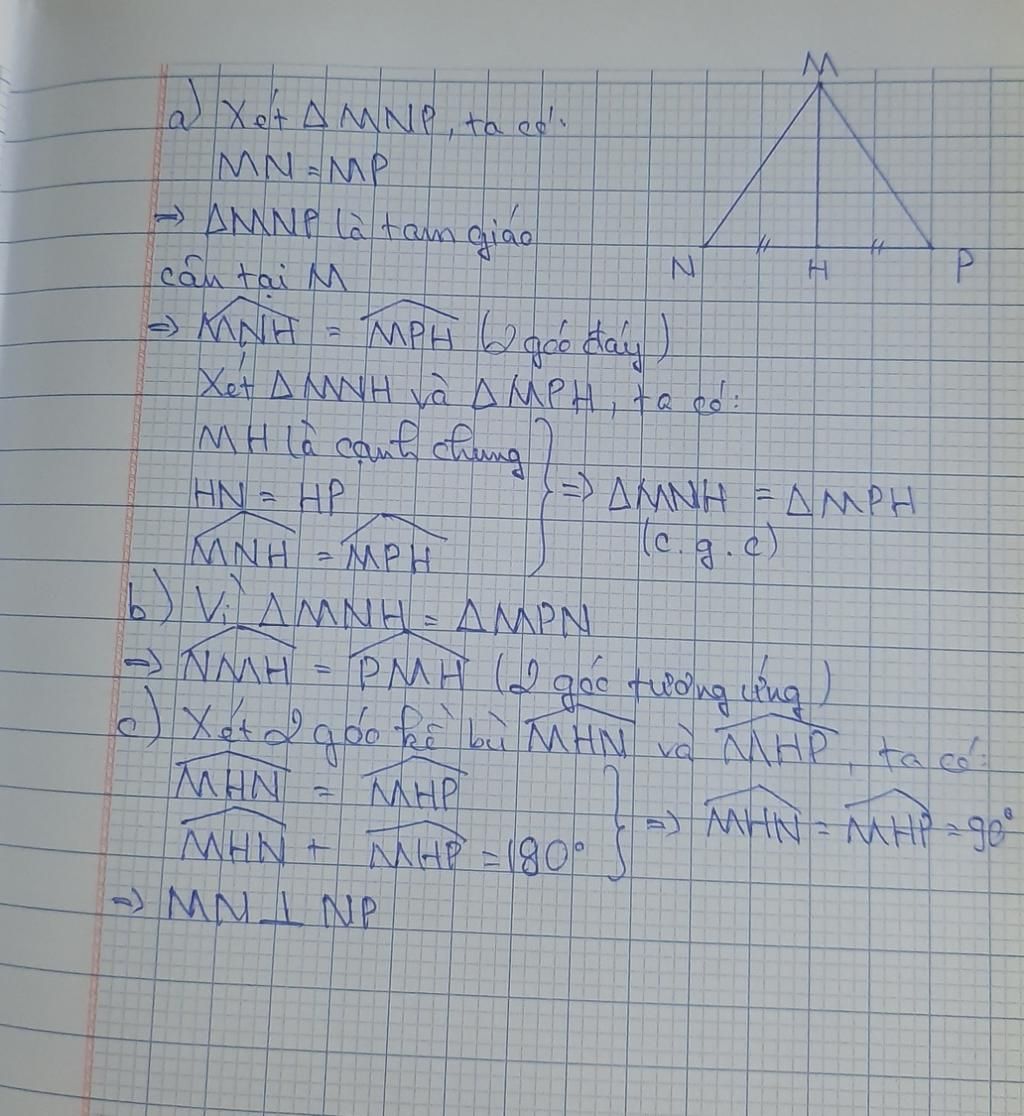 M
a) Xét ΔMNP, ta có:
MN = MP
⇒ ΔMNP là tam giác
N H P
cân tại M
⇒ \widehat{MNH} = \widehat{MPH} (2 góc đáy)
Xét ΔMNH và ΔMPH, ta có:
MH là cạnh chung
HN = HP
\widehat{MNH} = \widehat{MPH}
} ⇒ ΔMNH = ΔMPH
(c.g.c)
b) Vì ΔMNH = ΔMPN
⇒ \widehat{NMH} = \widehat{PMH} (2 góc tương ứng)
c) Xét 2 góc kề bù \widehat{MHN} và \widehat{MHP}, ta có:
\widehat{MHN} = \widehat{MHP}
\widehat{MHN} + \widehat{MHP} = 180°
} ⇒ \widehat{MHN} = \widehat{MHP} = 90°
⇒ MN ⊥ NP